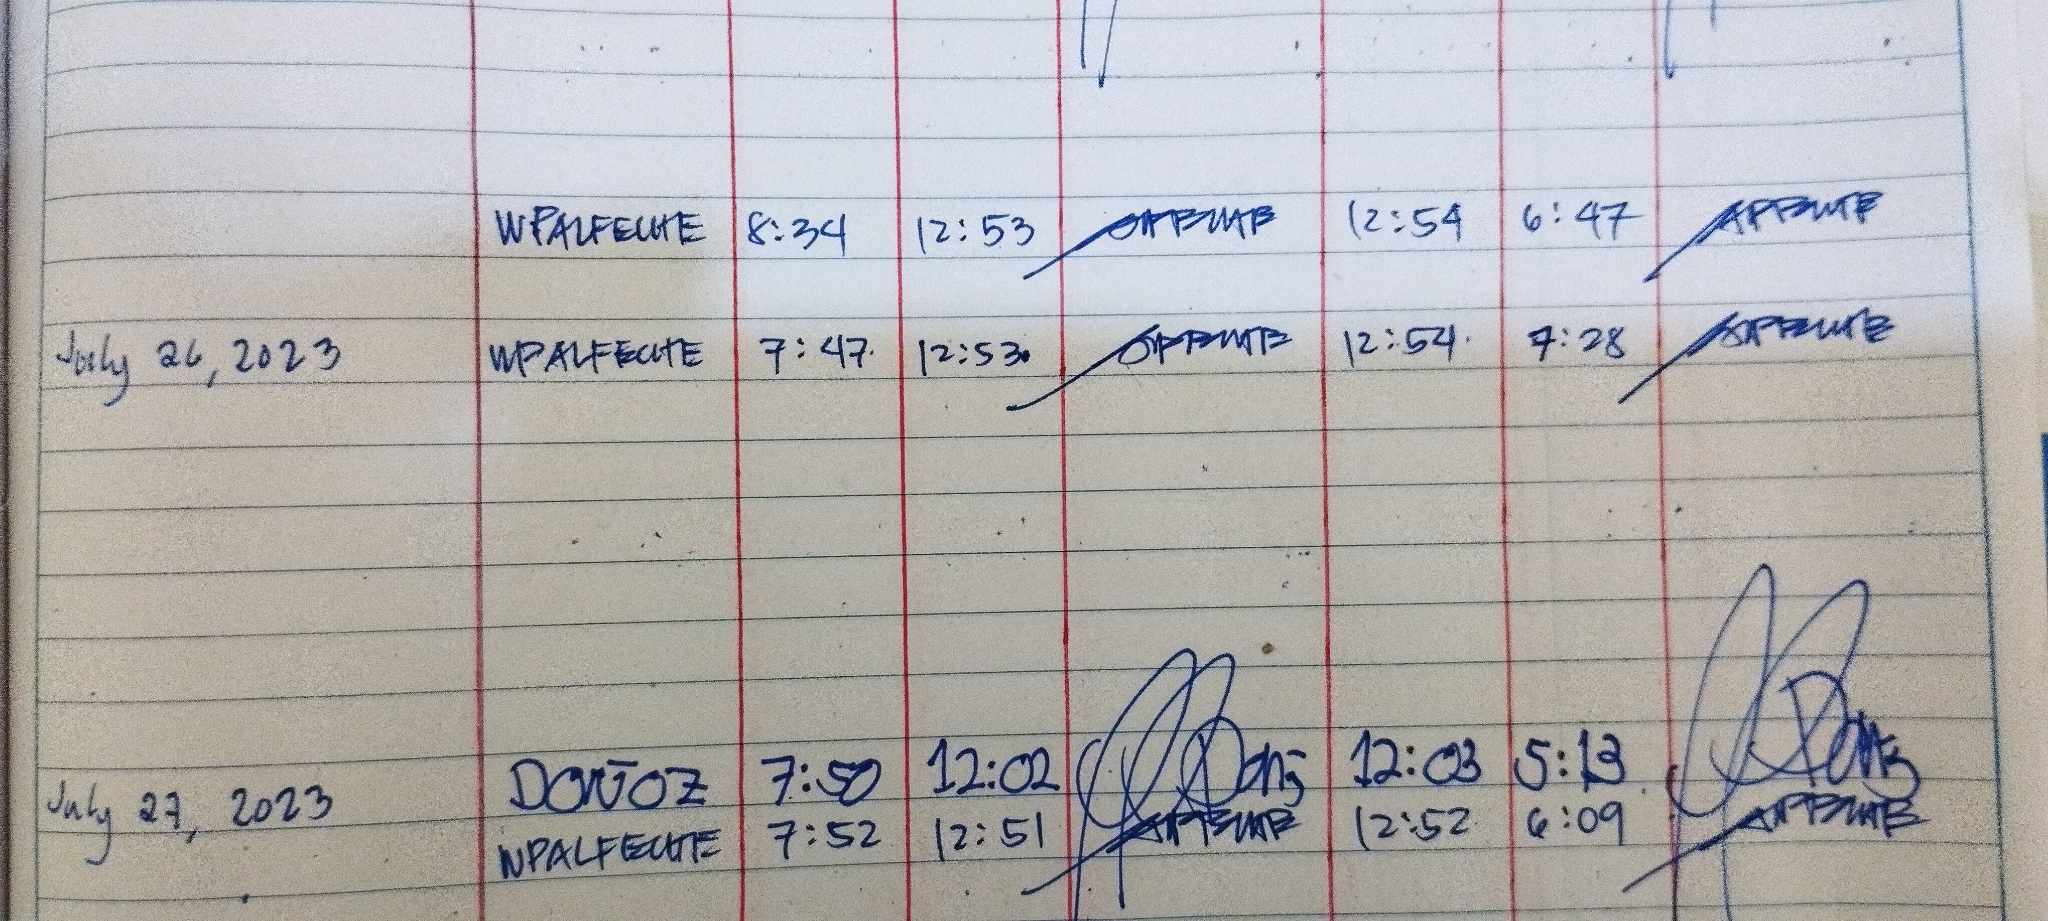 WPALFECHE 8:34 12:53 12:54 6:47
July 26, 2023 WPALFECHE 7:47 12:53 12:54 7:28
July 27, 2023 DOÑOZ 7:50 12:02 12:03 5:13
WPALFECHE 7:52 12:51 12:52 6:09